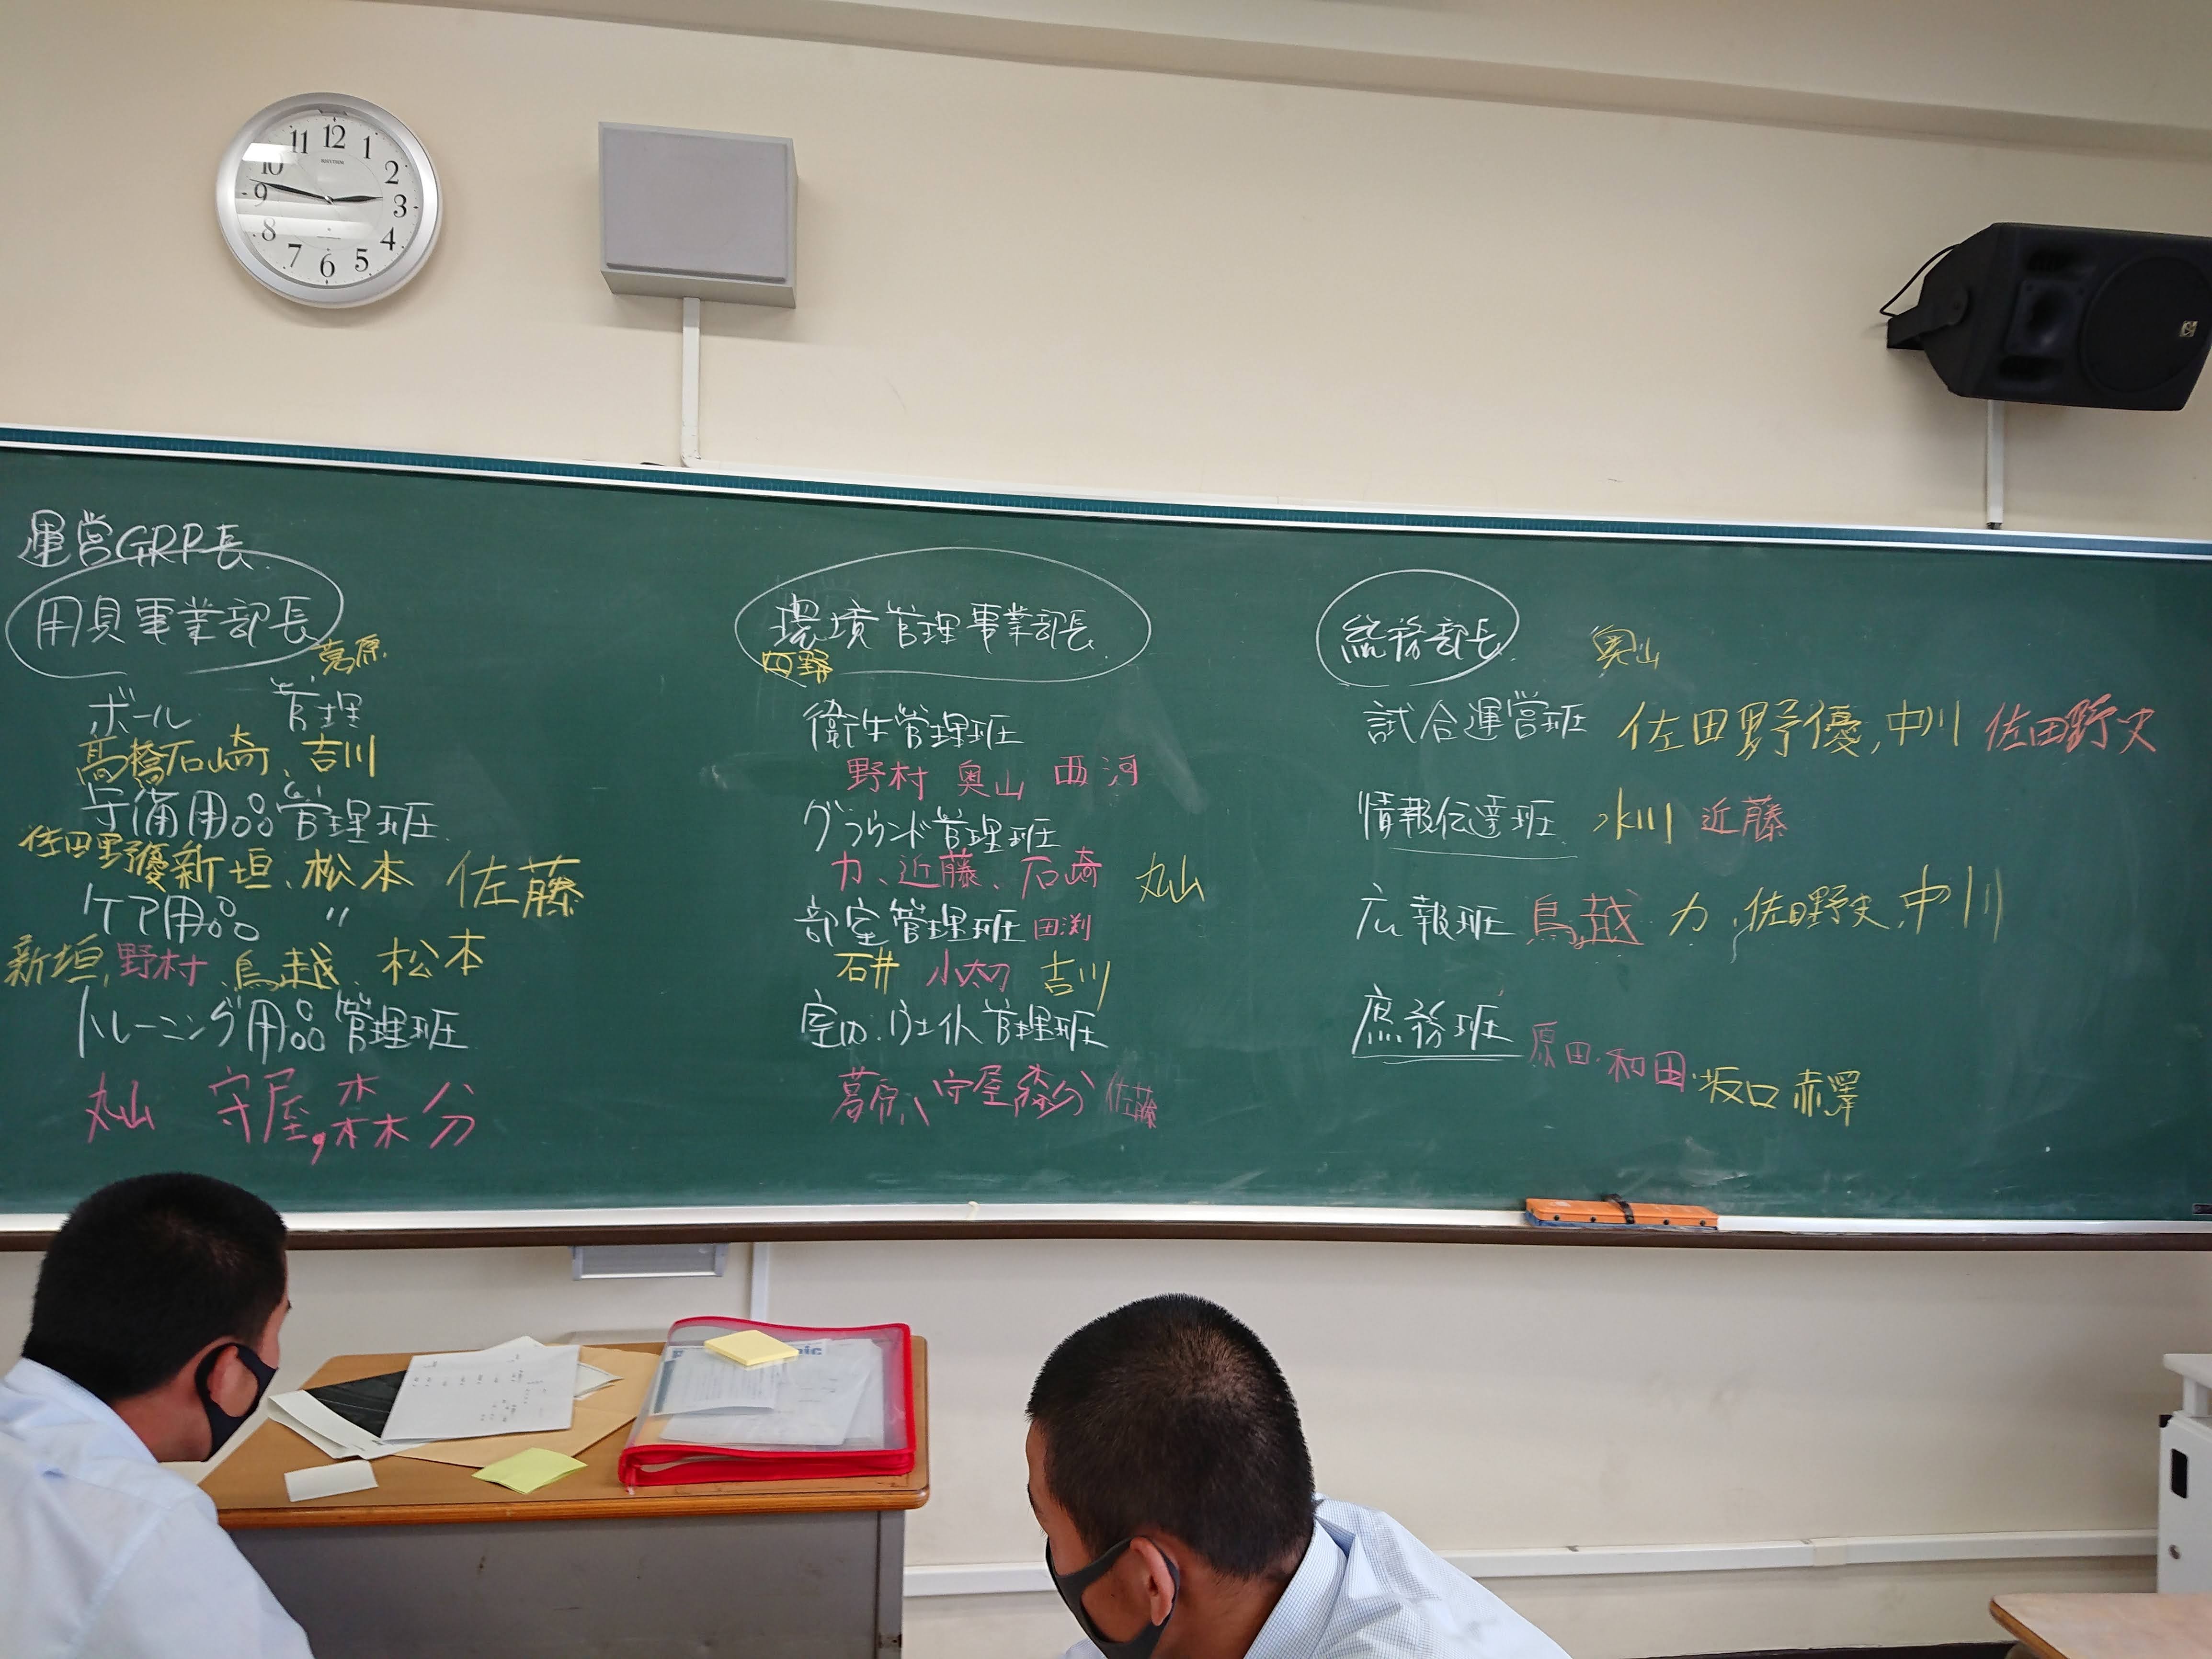 12
11
1
RHYTHM
10
2
9
3
8
4
7
5
6
運営GRP長
用具事業部長
葛原
ボール 管理
高橋石崎、吉川
守備用品管理班
佐田野優新垣、松本 佐藤
ケア用品 〃
新垣,野村、鳥越、松本
トレーニング用品管理班
丸山 守屋,森 分
環境管理事業部長
西野
衛生管理班
野村 奥山 西河
グラウンド管理班
力、近藤、石崎 丸山
部室管理班 田渕
石井 小太刀 吉川
管理班
葛原、守屋 佐藤
総務部長
奥山
試合運営班 佐田野優,中川 佐田野史
情報伝達班 氷川 近藤
広報班 鳥越 力、佐田野史,中川
庶務班 原田・和田・坂口 赤澤